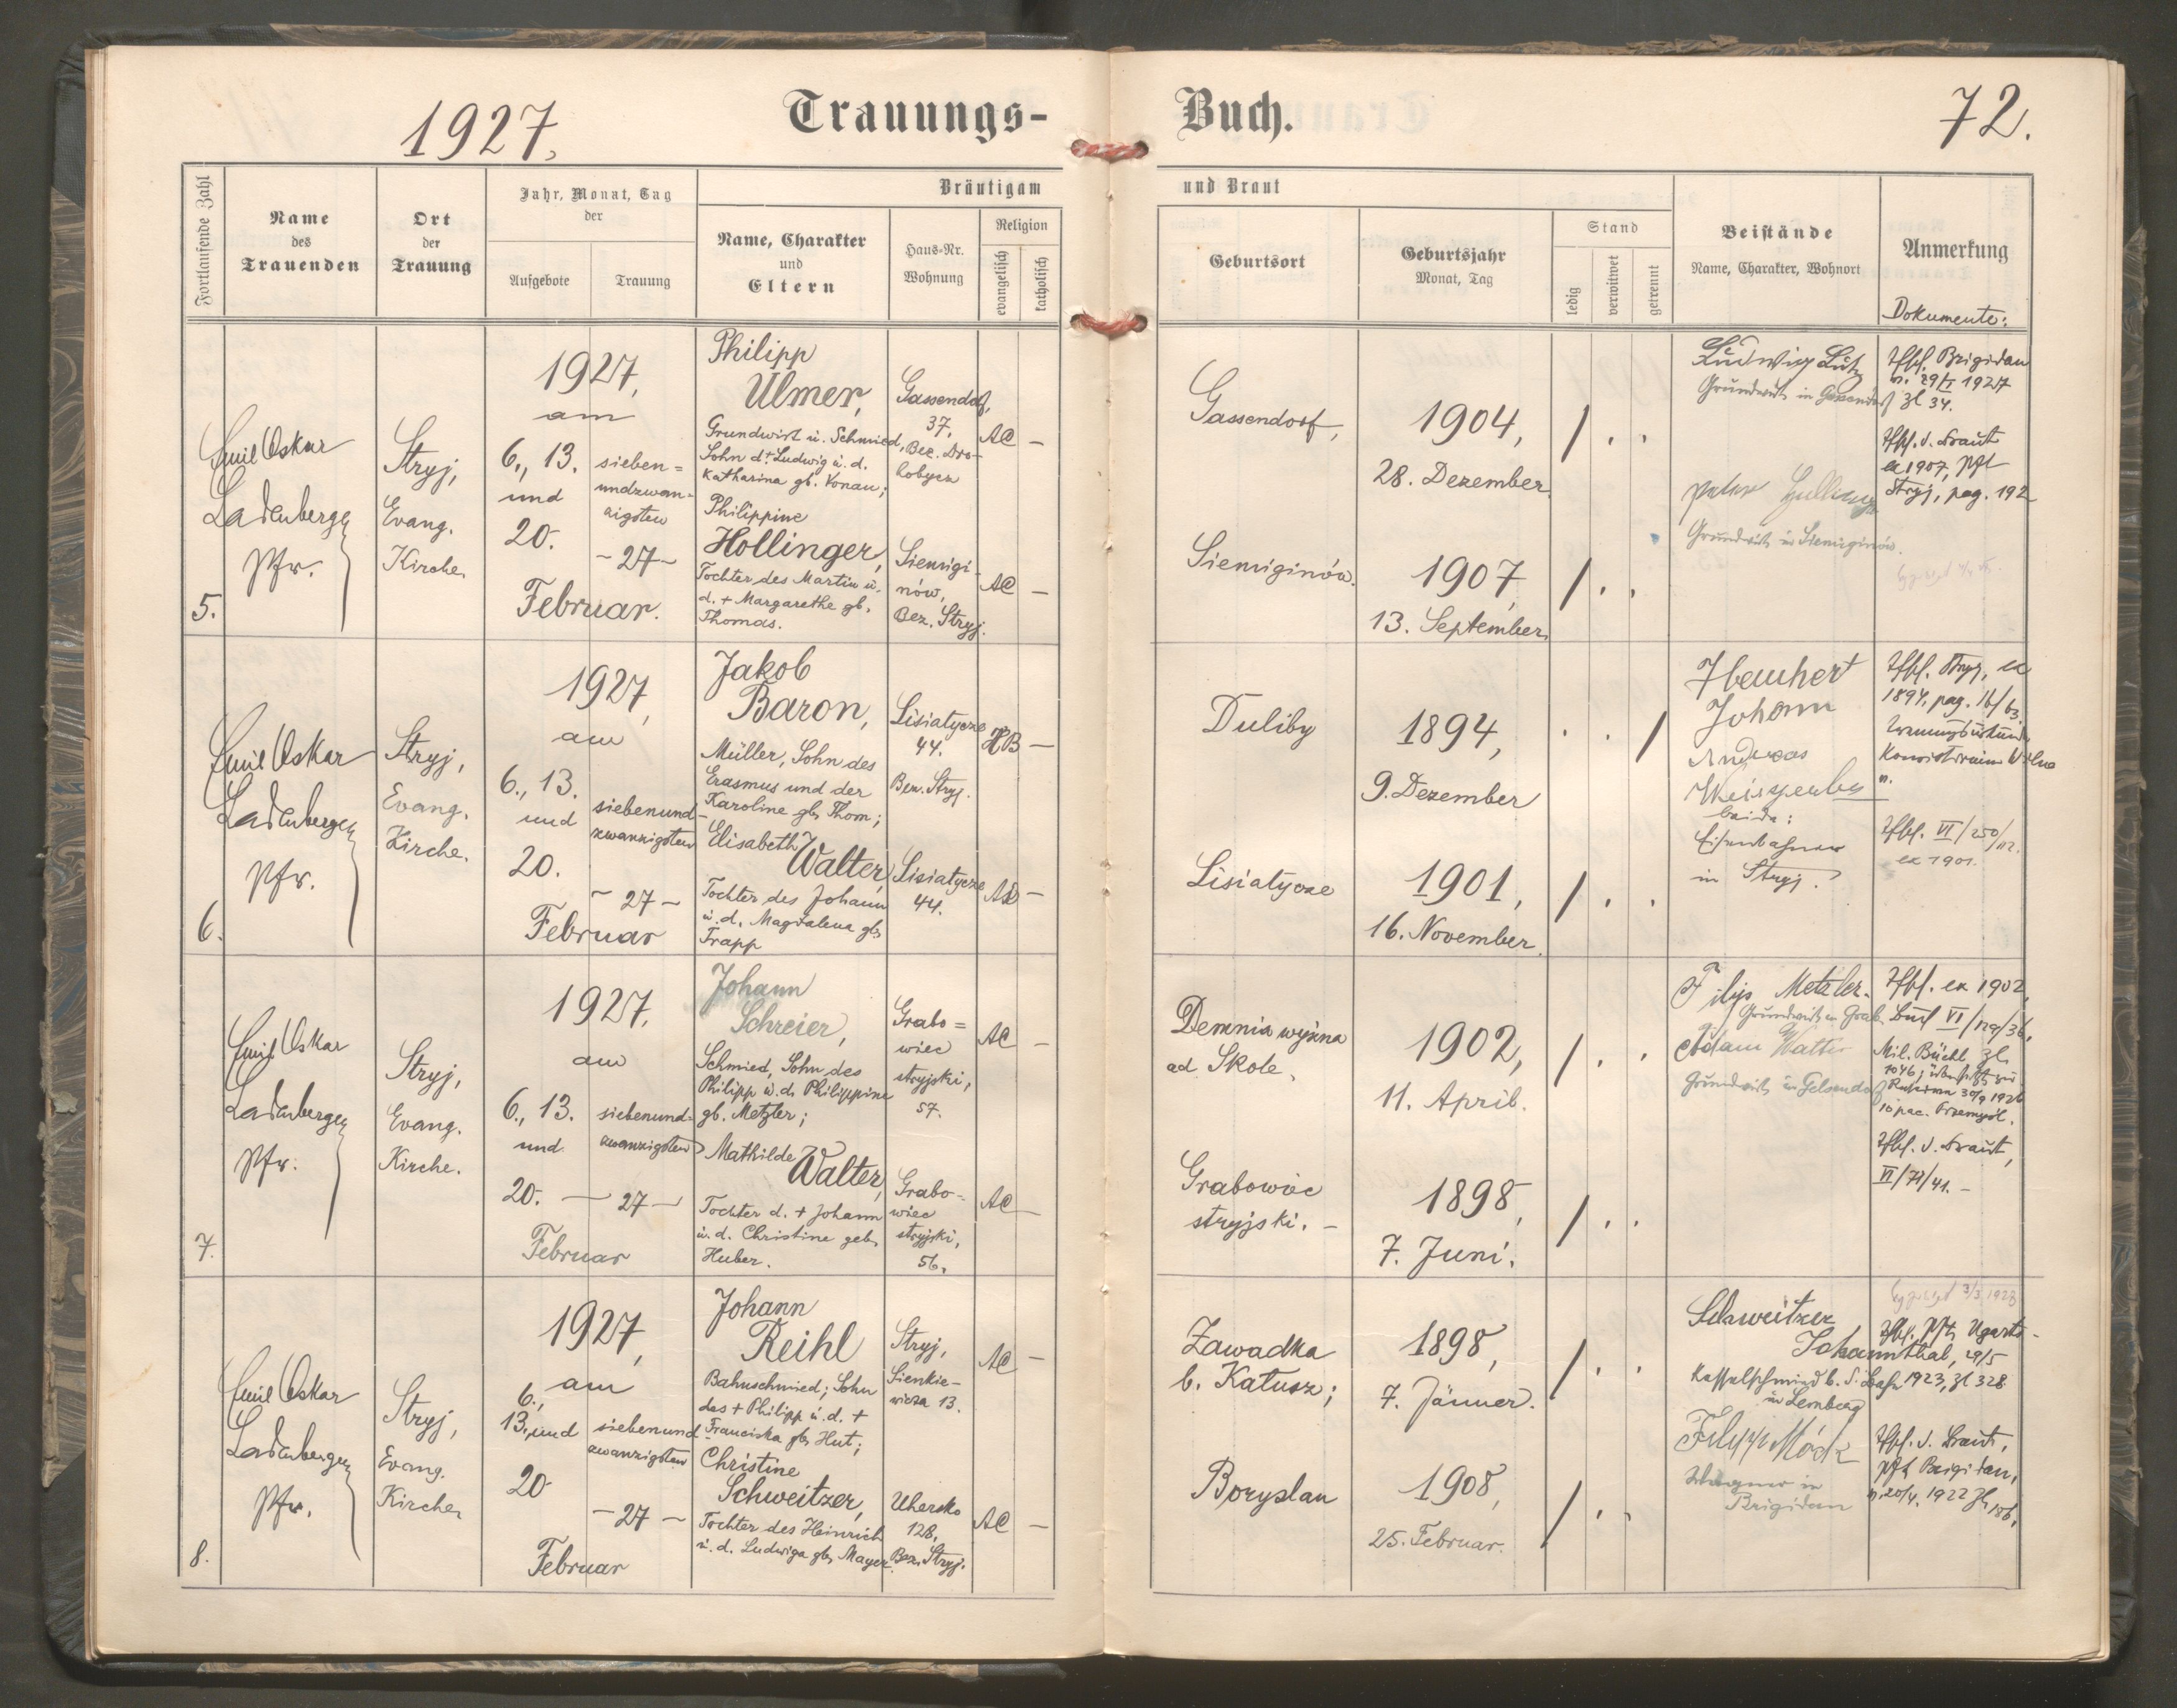 1927.
Trauungs-
Buch.
72.
Fortlaufende Zahl
Name
des
Trauenden
Ort
der
Trauung
Jahr, Monat, Tag
der
Aufgebote
Trauung
Bräutigam
Name, Charakter
und
Eltern
Haus-Nr.
Wohnung
Religion
evangelisch
katholisch
und Braut
Geburtsort
Geburtsjahr
Monat, Tag
Stand
ledig
verwitwet
getrennt
Beistände
Name, Charakter, Wohnort
Anmerkung
Dokumente:
5.
Emil Oskar
Ladenberger
Pfr.
Stryj,
Evang.
Kirche
1927,
am
6., 13.
und
20.
Februar.
sieben=
undzwan-
zigsten
- 27 -
Philipp
Ulmer,
Grundwirt u. Schmied,
Sohn d. + Ludwig u. d.
Katharina gb. Konau;
Philippine
Hollinger,
Tochter des Martin u.
d. + Margarethe gb.
Thomas.
Gassendorf,
37,
Bez. Dro-
hobycz
Siemigi-
nów,
Bez. Stryj.
AC -
AC -
Gassendorf,
Siemiginów.
1904,
28. Dezember
1907,
13. September
Ludwig Lutz
Grundwirt in Gassendorf
Peter Hollinger
Grundwirt in Siemiginów.
Brigidau
v. 29/I 1927
Zl 34.
d. Braut
ex 1907, Pft
Stryj, pag. 192
6.
Emil Oskar
Ladenberger
Pfr.
Stryj,
Evang.
Kirche.
1927,
am
6., 13.
und
20.
Februar
siebenund-
zwanzigsten
- 27 -
Jakob
Baron,
Müller, Sohn des
Erasmus und der
Karoline gb. Thom;
Elisabeth
Walter,
Tochter des Johann
u. d. Magdalena gb.
Trapp
Lisiatycze
44.
Bez. Stryj.
Lisiatycze
44.
HB -
AC -
Duliby
Lisiatycze
1894,
9. Dezember
1901,
16. November.
Johann
Andreas
beide:
Eisenbahner
in Stryj.
Stryj, ex
1894, pag. 16/63.
VI/250/
ex 1901.
7.
Emil Oskar
Ladenberger
Pfr.
Stryj,
Evang.
Kirche.
1927,
am
6., 13.
und
20.
Februar
siebenund=
zwanzigsten
- 27 -
Johann
Schreier,
Schmied, Sohn des
Philipp u. d. Philippine
gb. Metzler;
Mathilde
Walter,
Tochter d. + Johann
u. d. Christine geb.
Huber.
Grabo=
wiec
stryjski,
57.
Grabo-
wiec
stryjski,
56.
AC -
AC -
Demnia wyżna
ad Skole,
Grabowiec
stryjski. -
1902,
11. April.
1898,
7. Juni.
Filip Metzler.
Grundwirt in Grab.
Adam Walter
Grundwirt in Gelsendorf
ex 1902,
Mil. Büchl. Zl.
1046,
10 pac. Przemyśl.
d. Braut,
VI/71/41. -
8.
Emil Oskar
Ladenberger
Pfr.
Stryj,
Evang.
Kirche
1927,
am
6.,
13., und
20.
Februar
siebenund
zwanzigsten
- 27 -
Johann
Reihl
Bahnschmied; Sohn
des + Philipp u. d. +
Franciska gb. Hut;
Christine
Schweitzer,
Tochter des Heinrich
u. d. Ludwiga gb. Mayer.
Stryj,
Sienkie-
wicza 13.
Uhersko
128,
Bez. Stryj.
AC -
AC -
Zawadka
b. Kałusz;
Boryslau
1898,
7. Jänner.
1908,
25. Februar.
Schweitzer
Johann
Kesselschmied b. d. Bahn
in Lemberg
Filipp Möck
Wagner in
Brigidau
3/3 1928
Pft. Ugarts-
thal, 29/5
1923, Zl 328
d. Braut,
Pft. Brigidau,
v. 20/4. 1922 Zl. 186.